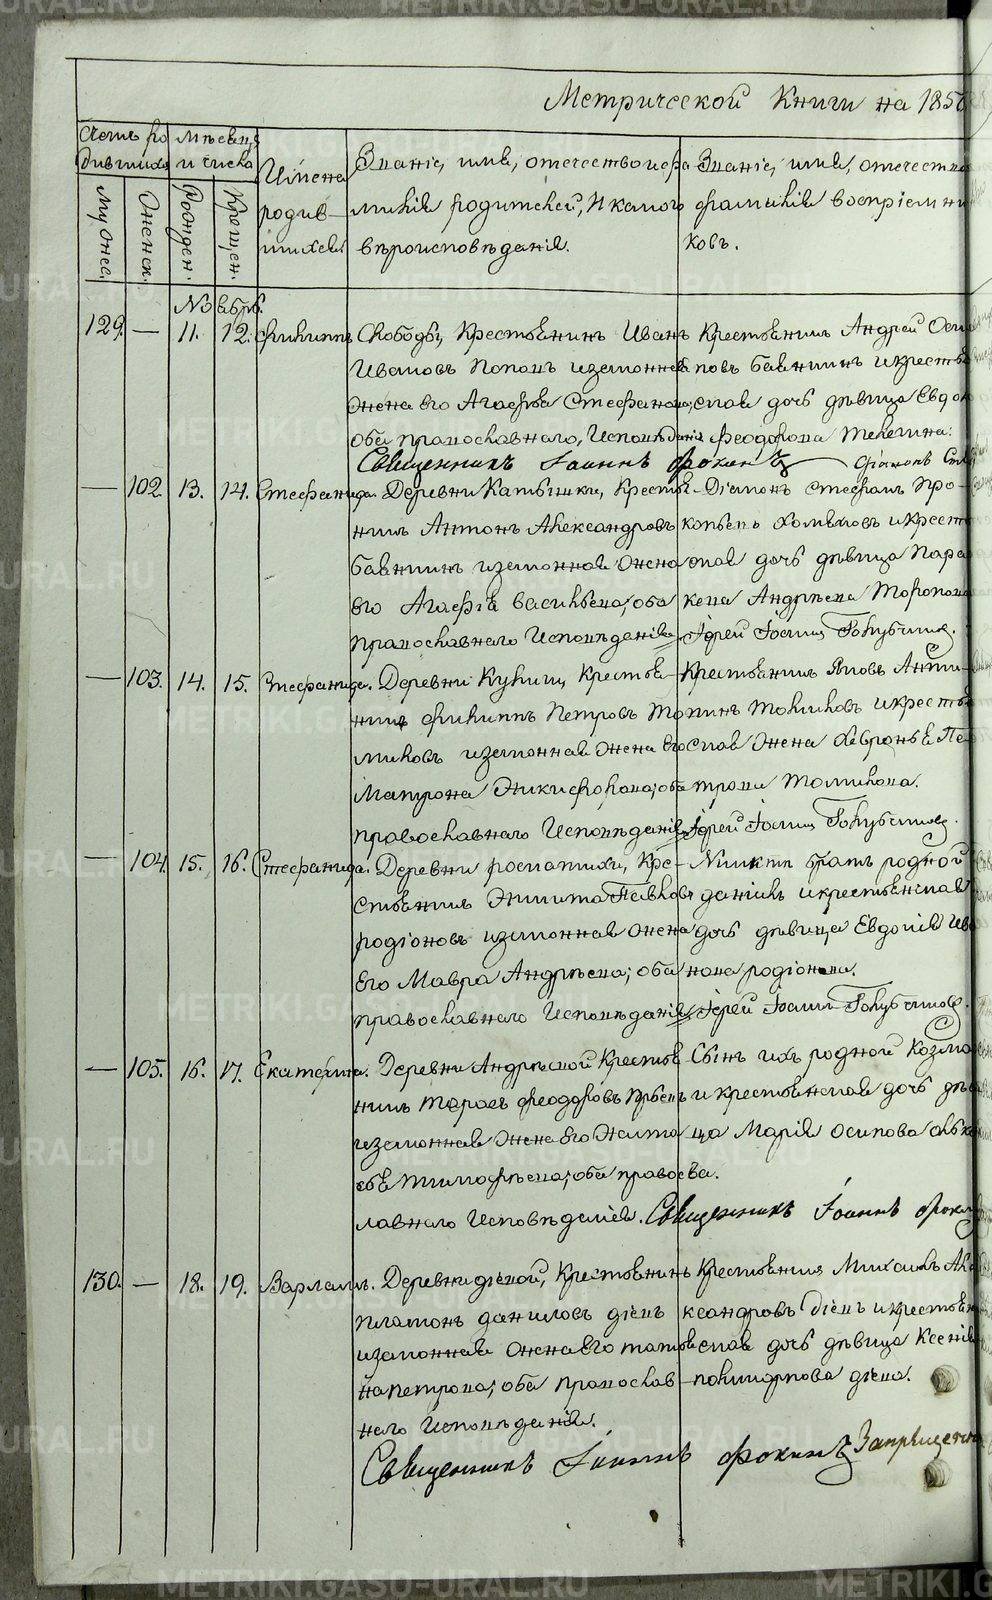 Метрической Книги на 185
Счетъ ро
дившихся
Мѣсяцъ
и числа
Имена
родив-
шихся
Званіе, имя, отечество и фа
милія родителей, и какого
вѣроисповѣданія.
Званіе, имя, отечество
фамилія воспріемни
ковъ.
Мужеск.
Женск.
Рожден.
Крещен.
Ноябрь.
129. — 11. 12. Филиппъ
Слободы, Крестьянинъ Иванъ
Ивановъ Поповъ и законная
жена его Агафья Стефанова;
оба православнаго, Исповѣданія
Священникъ Іоаннъ Фокинъ
Крестьянинъ Андрей Оси
повъ Бабкинъ и крестья
нская дочь дѣвица Евдок
Феодорова Телегина.
Діаконъ
— 102 13. 14. Стефанида.
Деревни Катышки, Крестья-
нинъ Антонъ Александровъ
Бабкинъ и законная жена
его Агафія Васильева; оба
православнаго Исповѣданія
Діаконъ Стефанъ Про-
копьевъ и крест
ская дочь дѣвица Пара
кева Андрѣева Торопова
Іерей Іоаннъ Голубчиковъ.
— 103. 14. 15. Стефанида.
Деревни Крестья-
нинъ Филиппъ Петровъ Тол
миковъ и законная жена его
Матрона Никифорова; оба
православнаго Исповѣданія
Крестьянинъ Яковъ
и крестья
нская жена Хавронья Пе
трова Толмикова.
Іерей Іоаннъ Голубчиковъ.
— 104. 15. 16. Стефанида.
Деревни Роспатихи, Кре-
стьянинъ Никита Павловъ
Родіоновъ и законная жена
его Мавра Андрѣева; оба
православнаго Исповѣданія
Никиты братъ родной
Даніилъ и крестьянская
дочь дѣвица Евдокія Ива
нова Родіонова.
Іерей Іоаннъ Голубчиковъ.
— 105. 16. 17. Екатерина.
Деревни Андрѣевой Крестья
нинъ Тарасъ Феодоровъ
и законная жена его
Тимофѣева; оба правос
лавнаго Исповѣданія.
Сынъ ихъ родной Козма
и крестьянская дочь дѣви
ца Марія Осипова
ва.
Священникъ Іоаннъ Фокинъ
130. — 18. 19. Варлаамъ.
Деревни Дѣевой, Крестьянинъ
Платонъ Даниловъ Дѣевъ
и законная жена его Татья
на Петрова; оба православ-
наго Исповѣданія.
Крестьянинъ Михаилъ Але
ксандровъ Дѣевъ и крестьян
ская дочь дѣвица Ксенія
Поликарпова Дѣева.
Священникъ Іоаннъ Фокинъ
METRIKI.GASO-URAL.RU